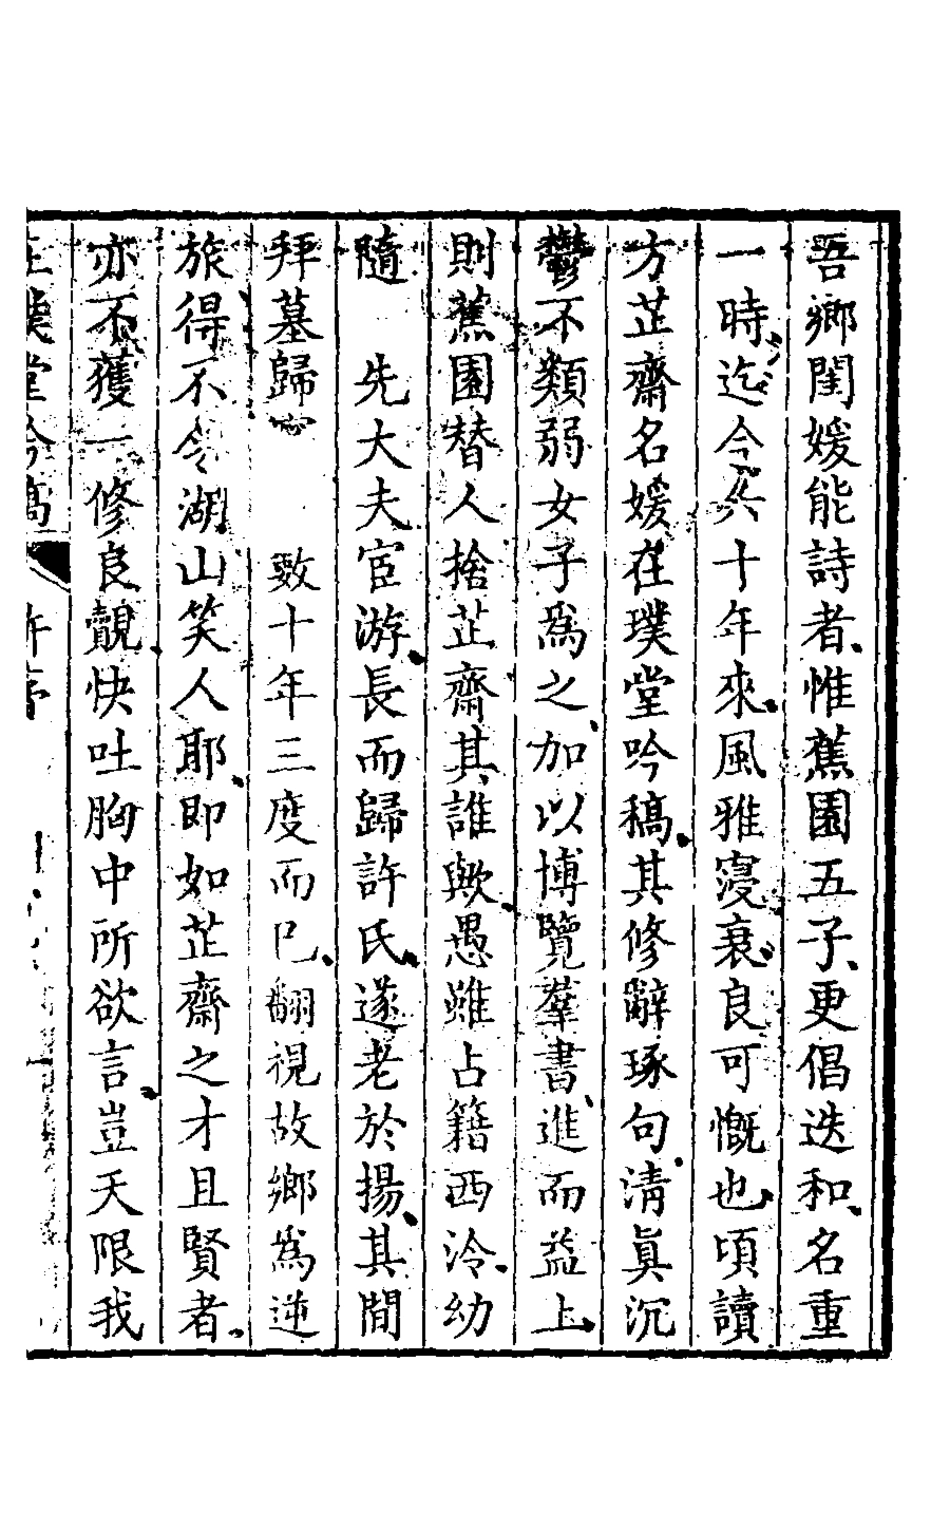 吾鄉閨媛能詩者惟蕉園五子更倡迭和名重
一時迄今六十年來風雅寖衰良可慨也頃讀
方芷齋名媛在璞堂吟稿其修辭琢句清眞沉
鬱不類弱女子爲之加以博覽羣書進而益上
則蕉園替人捨芷齋其誰歟愚雖占籍西泠幼
隨　先大夫宦游長而歸許氏遂老於揚其間
拜墓歸寧　數十年三度而已翻視故鄉爲逆
旅得不令湖山笑人耶即如芷齋之才且賢者
亦不獲一修良覿快吐胸中所欲言豈天限我
在璞堂吟稿